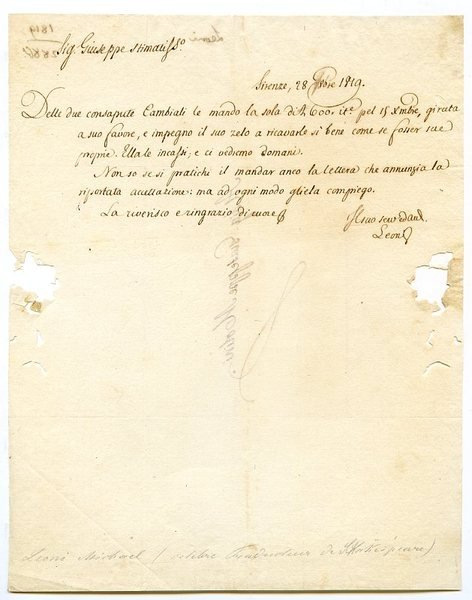 1819
Sig. Giuseppe Stimatiss.o
Firenze, 28 8bre 1819.
Delle due consapute Cambiali le mando la sola di £ 600. it.e pel 15 Xmbre, girata
a suo favore, e impegno il suo zelo a ricavarle sì bene come se fosser sue
proprie. Ella le incassi; e ci vedremo domani.
Non so se si pratichi il mandar anco la lettera che annunzia la
riportata accettazione: ma ad ogni modo gliela compiego.
La riverisco e ringrazio di cuore
Il suo
Leoni
Leoni Michael (célèbre traducteur de Shakespeare)